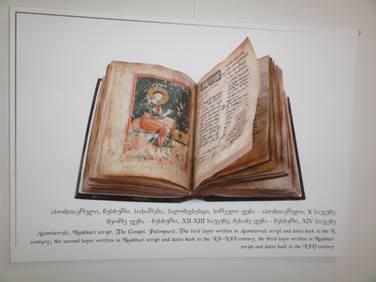 ასომთავრული, ნუსხური. სახარება, პალიმფსესტი, პირველი ფენა - ასომთავრული, X საუკუნე;
მეორე ფენა - ნუსხური, XII-XIII საუკუნე; მესამე ფენა - ნუსხური, XIV საუკუნე.
Asomtavruli, Nuskhuri script. The Gospel. Palimpsest. The first layer written in Asomtavruli script and dates back to the X
century; the second layer written in Nuskhuri script and dates to the XII-XIII century, the third layer written in Nuskhuri
script and dates back to the XIV century